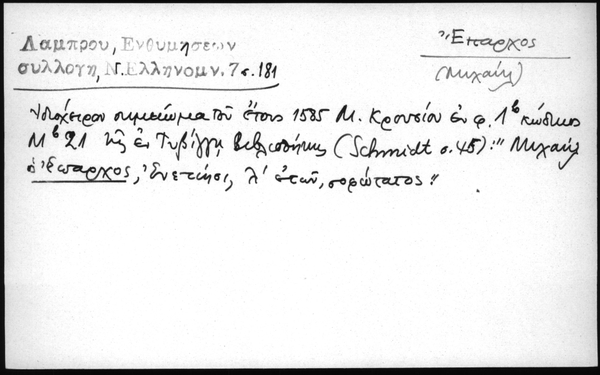 Λαμπρου, Ενθυμησεων
συλλογη, Ν. Ελληνομν. 7 σ. 181
Ἔπαρχος
(Μιχαήλ)
Ἰδιόχειρον σημείωμα τοῦ ἔτους 1585 Μ. Κρουσίου ἐν φ. 1β κώδικος
Μβ 21 τῆς ἐν Τυβίγγῃ βιβλιοθήκης (Schmidt σ. 45): "Μιχαὴλ
ὁ Ἔπαρχος, Ἐνετίησι, λ' ἐτῶν, σοφώτατος"